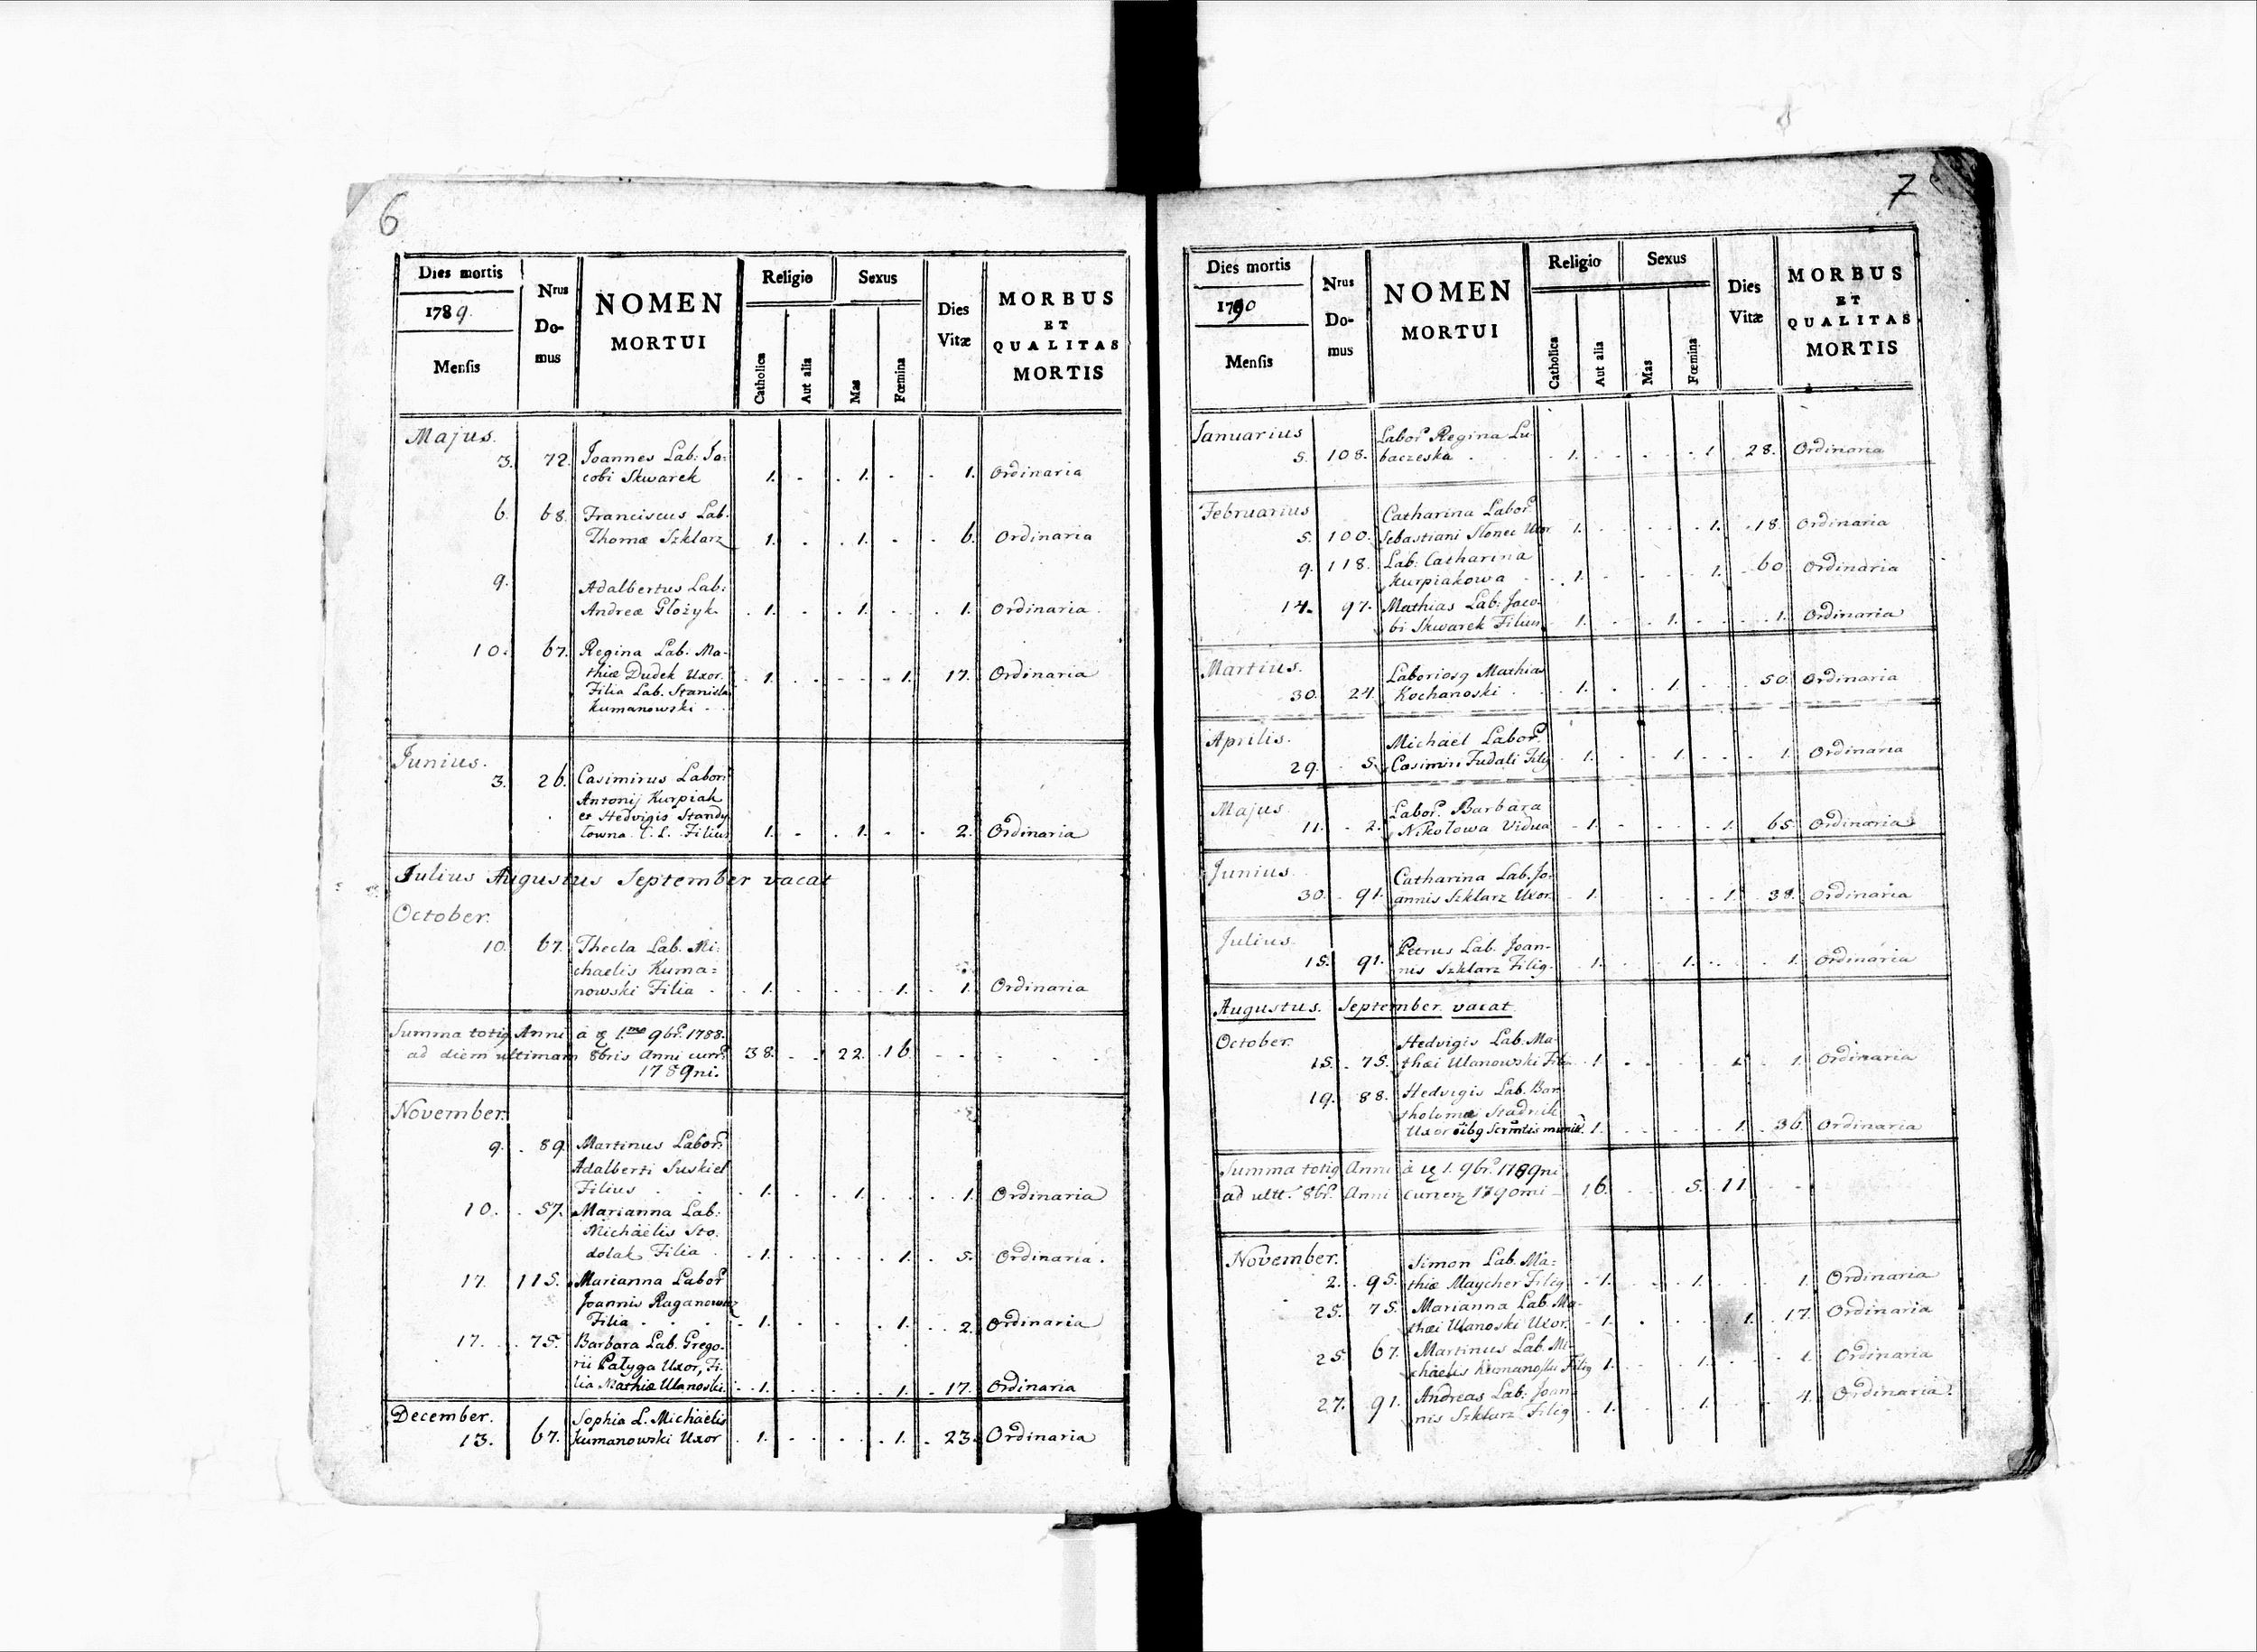 6
Dies mortis
1789.
Mensis
Nrus
Do-
mus
NOMEN
MORTUI
Religio
Catholica
Aut alia
Sexus
Mas
Fœmina
Dies
Vitæ
MORBUS
ET
QUALITAS
MORTIS
Majus.
3. 72. Joannes Lab: Ja:
cobi Skwarek 1. - 1. - 1. Ordinaria
6. 68. Franciscus Lab.
Thomæ Szklarz 1. . 1. . 6. Ordinaria
9. Adalbertus Lab:
Andreæ Głożyk 1. . 1. . 1. Ordinaria
10. 67. Regina Lab. Ma-
thiæ Dudek Uxor.
Filia Lab. Stanislai 1. . . 1. 17. Ordinaria
Kumanowski
Junius.
3. 26. Casimirus Labori
Antonij Kurpiak
et Hedvigis Standy
łowna C. L. Filius 1. - 1. - 2. Ordinaria
Julius Augustus September vacat
October.
10. 67. Thecla Lab. Mi:
chaelis Kuma:
nowski Filia 1. . . 1. 1. Ordinaria
Summa totig Anni à 1.mo 9br. 1788.
ad diem ultimam 8bris Anni curr. 38. . 22. 16.
1789ni.
November.
9. 89. Martinus Labor.
Adalberti Suskiel
Filius 1. . 1. . 1. Ordinaria
10. 57. Marianna Lab:
Michaëlis Sto.
dolak Filia 1. . . 1. 5. Ordinaria.
17. 115. Marianna Labor
Joannis Raganowicz
Filia 1. . . 1. 2. Ordinaria
17. 75. Barbara Lab. Grego-
rii Pałyga Uxor, Fi-
lia Mathiæ Ulanoski 1. . . 1. 17. Ordinaria
December. Sophia L. Michaelis
13. 67. Kumanowski Uxor 1. . . 1. 23. Ordinaria
7
Dies mortis
1790
Mensis
Nrus
Do-
mus
NOMEN
MORTUI
Religio
Catholica
Aut alia
Sexus
Mas
Fœmina
Dies
Vitæ
MORBUS
ET
QUALITAS
MORTIS
Januarius Labor. Regina Lu
5. 108. baczeska 1. . . 1. 28. Ordinaria
Februarius Catharina Labor.
5. 100. Sebastiani Słonec Uxor 1. . . 1. 18. Ordinaria
9. 118. Lab: Catharina
Kurpiakowa 1. . . 1. 60. Ordinaria
14. 97. Mathias Lab: Jaco-
bi Skwarek Filius 1. . 1. . 1. Ordinaria
Martius. Laboriosg Mathias
30. 24. Kochanoski 1. . 1. . 50. Ordinaria
Aprilis. Michaël Labor.
29. 5. Casimiri Fudali Filg 1. . 1. . 1. Ordinaria
Majus Labor. Barbara
11. 2. Nikołowa Vidua 1. . . 1. 65. Ordinaria
Junius. Catharina Lab. Jo-
30. 91. annis Szklarz Uxor. 1. . . 1. 38. Ordinaria
Julius. Petrus Lab. Joan-
15. 91. nis Szklarz Filig. 1. . 1. . 1. Ordinaria
Augustus. September vacat
October. Hedvigis Lab. Ma-
15. 75. thæi Ulanowski Filia 1. . . 1. 1. Ordinaria
19. 88. Hedvigis Lab. Bar
tholomæ Stadnik
Uxor 1. . . 1. 36. Ordinaria
Summa totig Anni à 1. 9br. 1789ni
ad ult. 8br. Anni 1790mi 16. . 5. 11
November. Simon Lab. Ma:
2. 95. thiæ Maycher Filig. 1. . 1. . 1. Ordinaria
25. 75. Marianna Lab. Ma-
thæi Ulanoski Uxor. 1. . . 1. 17. Ordinaria
25. 67. Martinus Lab. Mi-
chaelis Kumanoski Filig 1. . 1. . 1. Ordinaria
27. 91. Andreas Lab: Joan-
nis Szklarz Filig 1. . 1. . 4. Ordinaria.